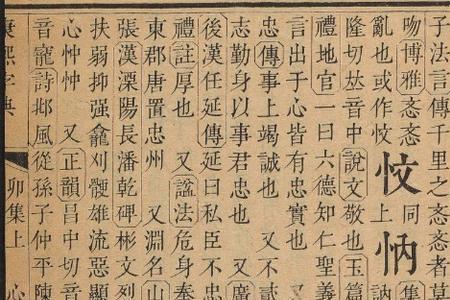 子法言傳千里之忞忞者
吻博雅忞忞
亂也或作忟
忟
同
上
集
訥
隆切𠀤音中說文敬也玉篇
禮地官一曰六德知仁聖義
言出于心皆有忠實也
忠傳事上竭誠也 又不貳
志勤身以事君忠也 又廣
後漢任延傳延曰私臣不忠
禮註厚也 又諡法危身奉
東郡唐置忠州 又淵名山
張漢溧陽長潘乾碑彬文烈
扶弱抑强龕刈骾雄流惡顯
心忡忡 又正韻昌中切音
音寵詩邶風從孫子仲平陳
康熙字典 卯集上 心